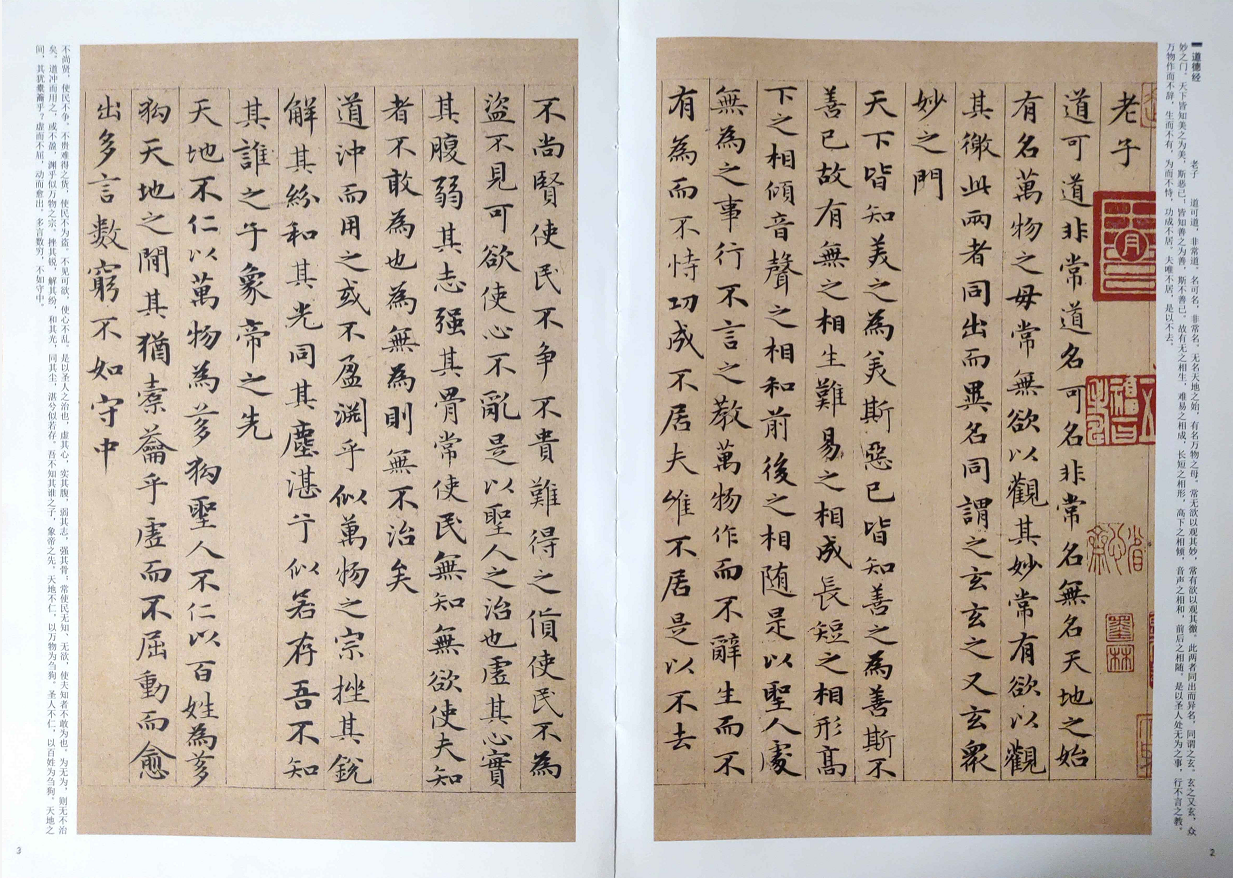 道德经
老子　道可道，非常道。名可名，非常名。无名天地之始，有名万物之母。常无欲以观其妙，常有欲以观其徼。此两者同出而异名，同谓之玄。玄之又玄，众
妙之门。天下皆知美之为美，斯恶已；皆知善之为善，斯不善已。故有无之相生，难易之相成，长短之相形，高下之相倾，音声之相和，前后之相随。是以圣人处无为之事，行不言之教，
万物作而不辞，生而不有，为而不恃，功成不居。夫唯不居，是以不去。
老子
道可道非常道名可名非常名無名天地之始
有名萬物之母常無欲以觀其妙常有欲以觀
其徼此兩者同出而異名同謂之玄玄之又玄衆
妙之門
天下皆知美之為美斯惡已皆知善之為善斯不
善已故有無之相生難易之相成長短之相形高
下之相傾音聲之相和前後之相随是以聖人處
無為之事行不言之教萬物作而不辭生而不
有為而不恃功成不居夫唯不居是以不去
2
不尚賢使民不争不貴難得之貨使民不為
盜不見可欲使心不亂是以聖人之治也虛其心實
其腹弱其志强其骨常使民無知無欲使夫知
者不敢為也為無為則無不治矣
道沖而用之或不盈淵乎似萬物之宗挫其銳
解其紛和其光同其塵湛兮似若存吾不知
其誰之子象帝之先
天地不仁以萬物為芻狗聖人不仁以百姓為芻
狗天地之間其猶橐籥乎虛而不屈動而愈
出多言數窮不如守中
不尚贤，使民不争，不贵难得之货，使民不为盗，不见可欲，使心不乱。是以圣人之治也，虚其心，实其腹，弱其志，强其骨；常使民无知、无欲，使夫知者不敢为也。为无为，则无不治
矣。道冲而用之，或不盈，渊乎似万物之宗。挫其锐，解其纷，和其光，同其尘，湛兮似若存。吾不知其谁之子，象帝之先。天地不仁，以万物为刍狗。圣人不仁，以百姓为刍狗。天地之
间，其犹橐籥乎？虚而不屈，动而愈出，多言数穷，不如守中。
3